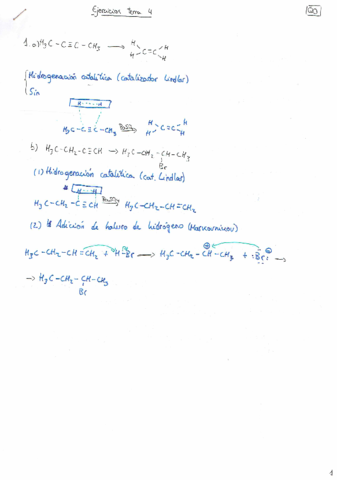 Ejercicios Tema 4
QO
1. a) H₃C - C ≡ C - CH₃ ⟶ H H C = C H H
Hidrogenación catalítica (catalizador Lindlar)
Sin
H ---- H
H₃C - C ≡ C - CH₃ ⟶ H H C = C H H
b) H₃C - CH₂ - C ≡ CH ⟶ H₃C - CH₂ - CH - CH₃
Br
(1) Hidrogenación catalítica (cat. Lindlar)
H ---- H
H₃C - CH₂ - C ≡ CH ⟶ H₃C - CH₂ - CH = CH₂
(2) Adición de haluro de hidrógeno (Markovnikov)
H₃C - CH₂ - CH = CH₂ + H - Br ⟶ H₃C - CH₂ - CH - CH₃ + :Br: ⊖ ⟶
⊕
⟶ H₃C - CH₂ - CH - CH₃
Br
1